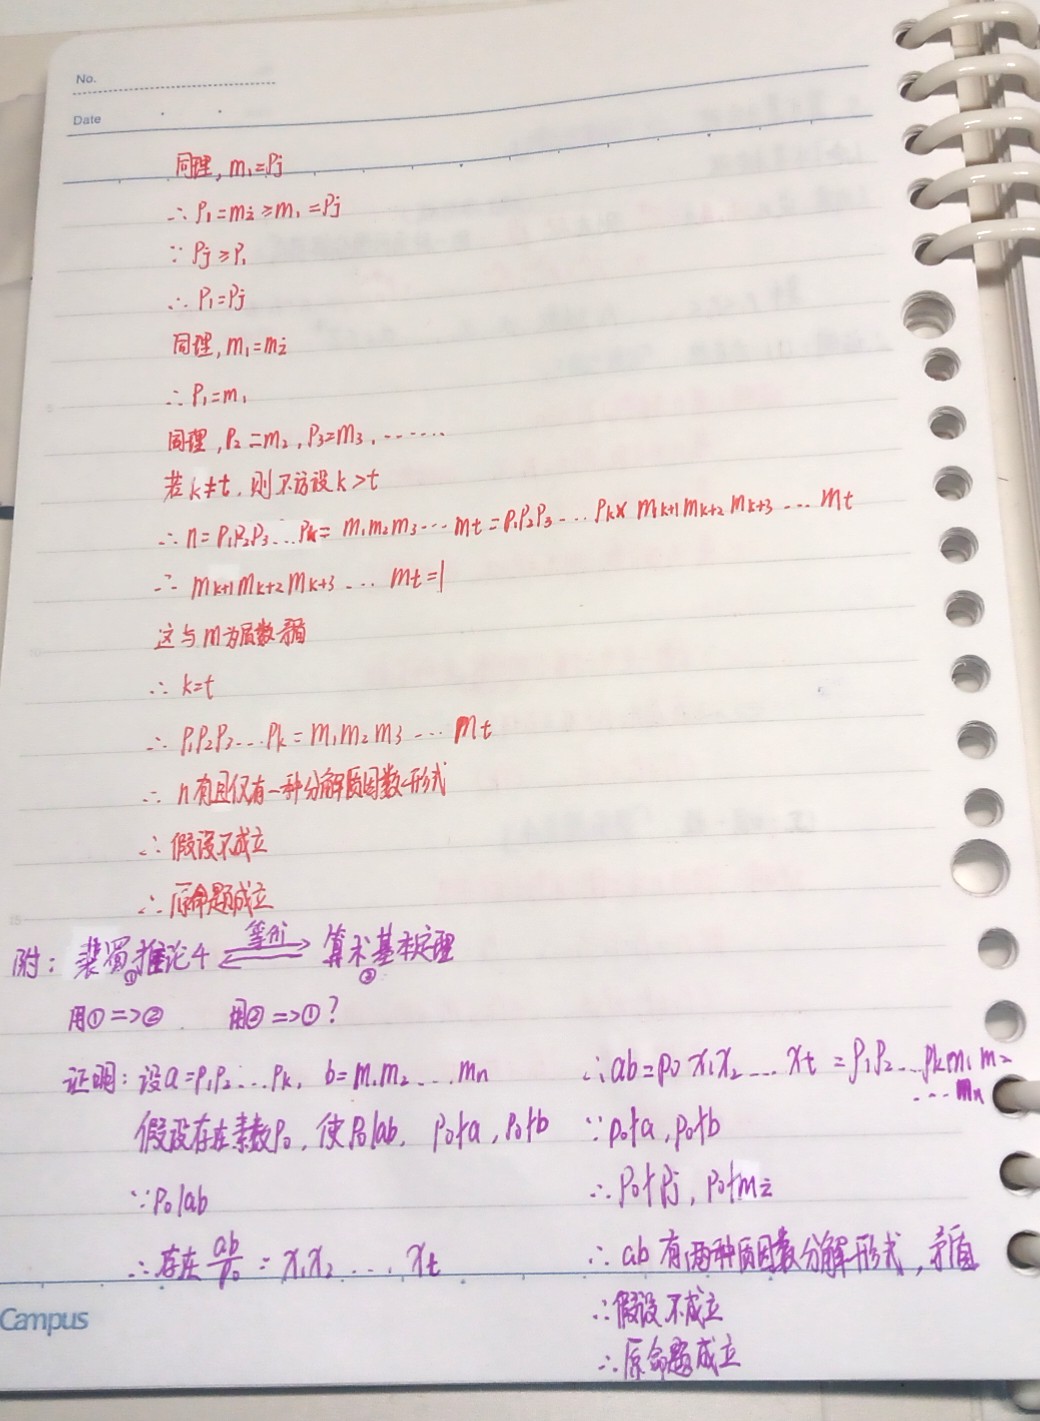 No.
Date
同理, m₁=Pj
∴ P₁=mi≥m₁=Pj
∵ Pj≥P₁
∴ P₁=Pj
同理, m₁=mi
∴ P₁=m₁
同理, P₂=m₂, P₃=m₃, ······
若k≠t, 则不访设k>t
∴ n=P₁P₂P₃...Pk= m₁m₂m₃···mt=P₁P₂P₃...Pk× mk+1mk+2mk+3...mt
∴ mk+1mk+2mk+3... mt=1
这与m为质数矛盾
∴ k=t
∴ P₁P₂P₃...Pk=m₁m₂m₃...mt
∴ n有且仅有一种分解质因数形式
∴ 假设不成立
∴ 原命题成立
附: 裴蜀推论4 ① 等价 算术基本定理 ②
用①=>② 用②=>①?
证明: 设a=P₁P₂...Pk, b=m₁m₂...mn
假设存在素数P₀, 使P₀|ab, P₀∤a, P₀∤b
∵P₀|ab
∴存在ab/P₀=x₁x₂...xt
∴ab=P₀x₁x₂...xt=P₁P₂...Pkm₁m₂
...mn
∵P₀∤a, P₀∤b
∴P₀∤Pj, P₀∤mi
∴ab有两种质因数分解形式, 矛盾
∴假设不成立
∴原命题成立
Campus